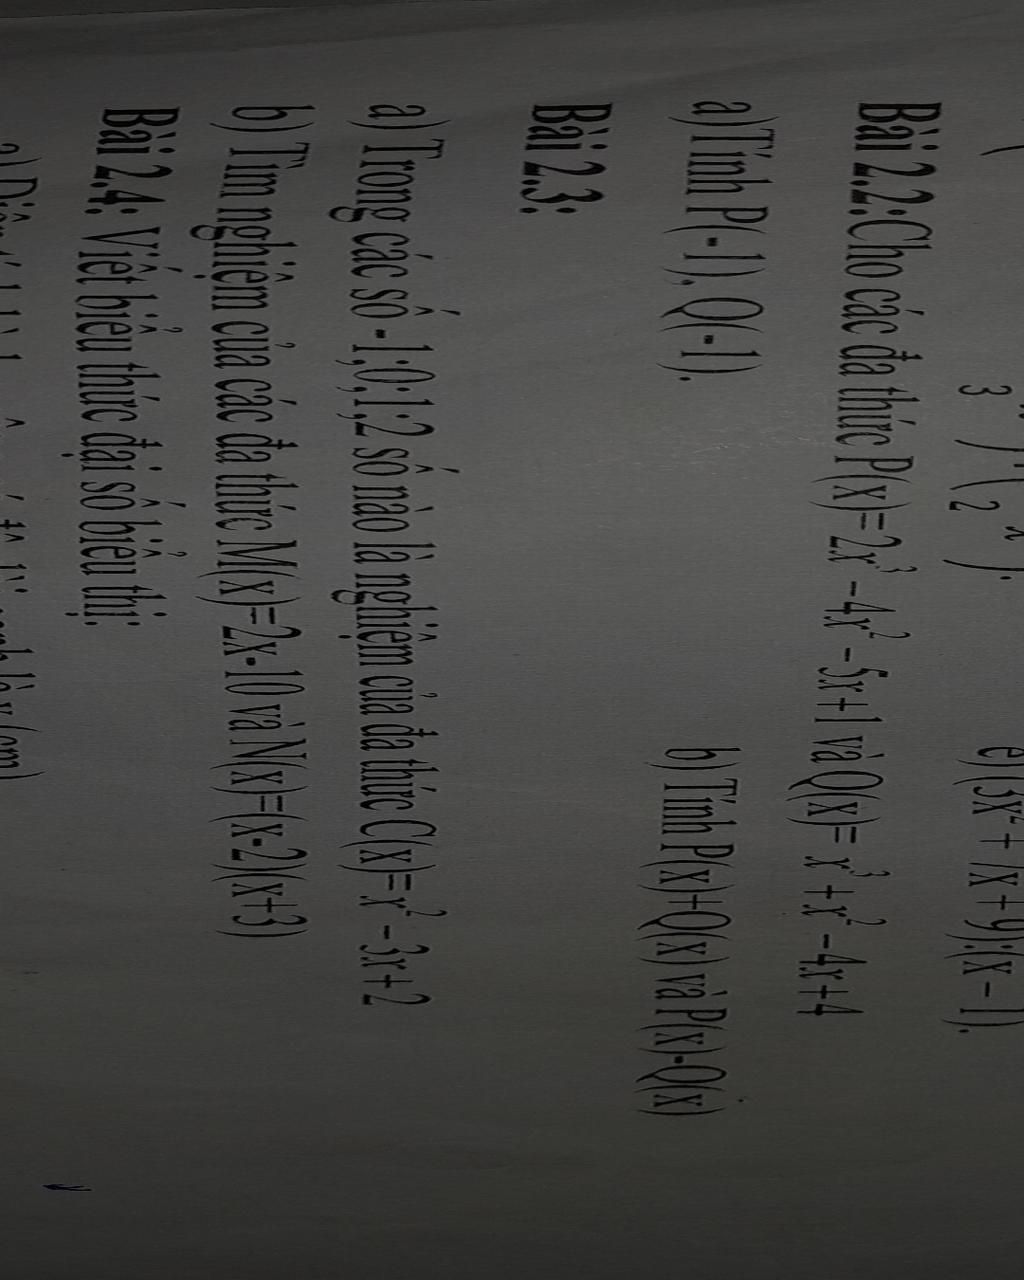 3 ) ( 2 x ).
e)(3x² + 7x + 9):(x – 1).
Bài 2.2:Cho các đa thức P(x)=2x³ – 4x² – 5x+1 và Q(x)= x³ + x² – 4x+4
a)Tính P(-1), Q(-1).
b) Tính P(x)+Q(x) và P(x)-Q(x)
Bài 2.3:
a) Trong các số -1;0;1;2 số nào là nghiệm của đa thức C(x)=x² – 3x+2
b) Tìm nghiệm của các đa thức M(x)=2x-10 và N(x)=(x-2)(x+3)
Bài 2.4: Viết biểu thức đại số biểu thị: